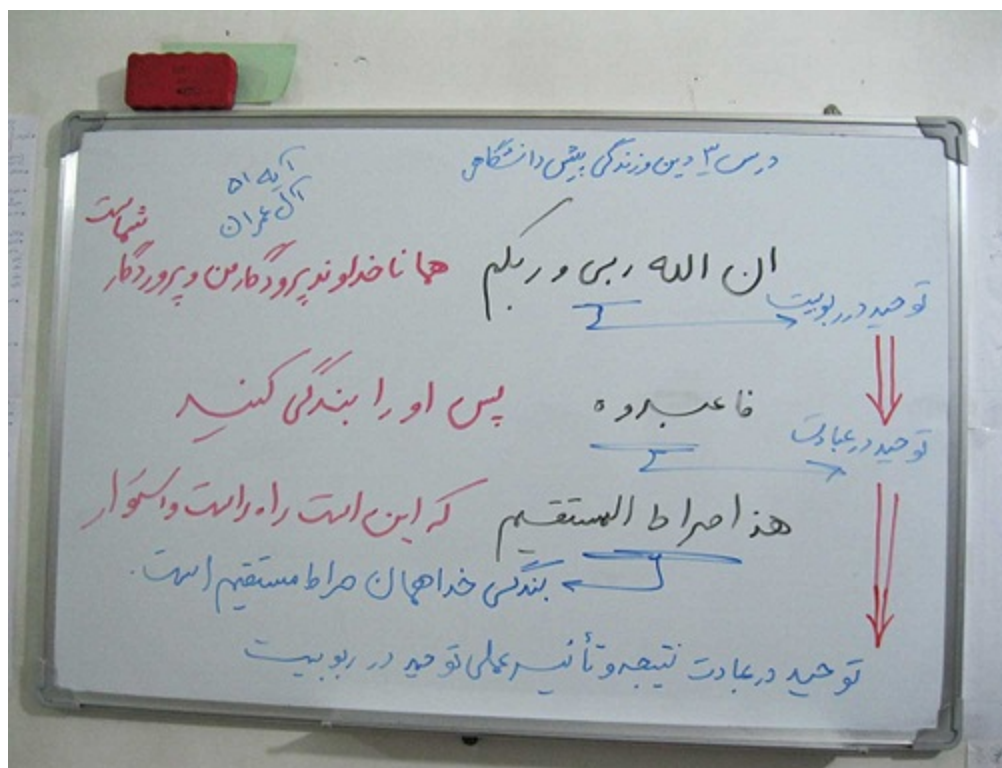 درس ۳ دین و زندگی پیش دانشگاهی
آیه ۵۱
آل عمران
ان الله ربی و ربکم همانا خداوند پرودگار من و پروردگار
شماست
توحید در ربوبیت
فاعبدوه پس او را بندگی کنید
توحید در عبادت
هذا صراط المستقیم که این است راه راست و استوار
بندگی خدا همان صراط مستقیم است.
توحید در عبادت نتیجه و تأثیر عملی توحید در ربوبیت